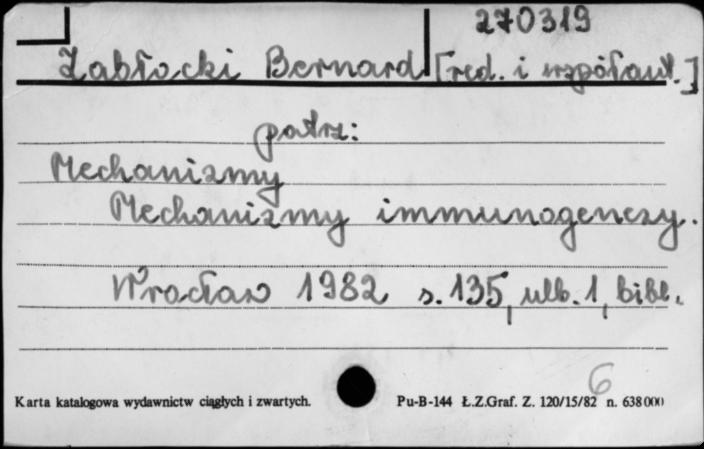 270319
Zabłocki Bernard [red. i współaut.]
patrz:
Mechanizmy
Mechanizmy immunogenezy.
Wrocław 1982 s. 135, ulb. 1, bibl.
6
Karta katalogowa wydawnictw ciągłych i zwartych. Pu-B-144 Ł.Z.Graf. Z. 120/15/82 n. 638000